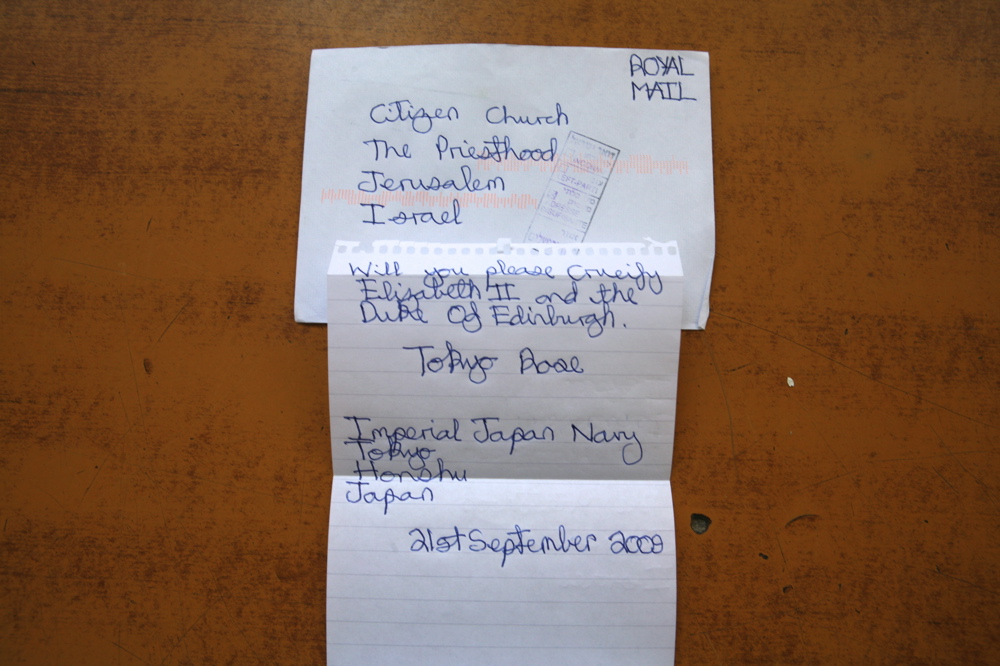 ROYAL
MAIL
Citizen Church
The Priesthood
Jerusalem
Israel
Will you please Crucify
Elizabeth II and the
Duke Of Edinburgh.
Tokyo Rose
Imperial Japan Navy
Tokyo
Honshu
Japan
21st September 2009